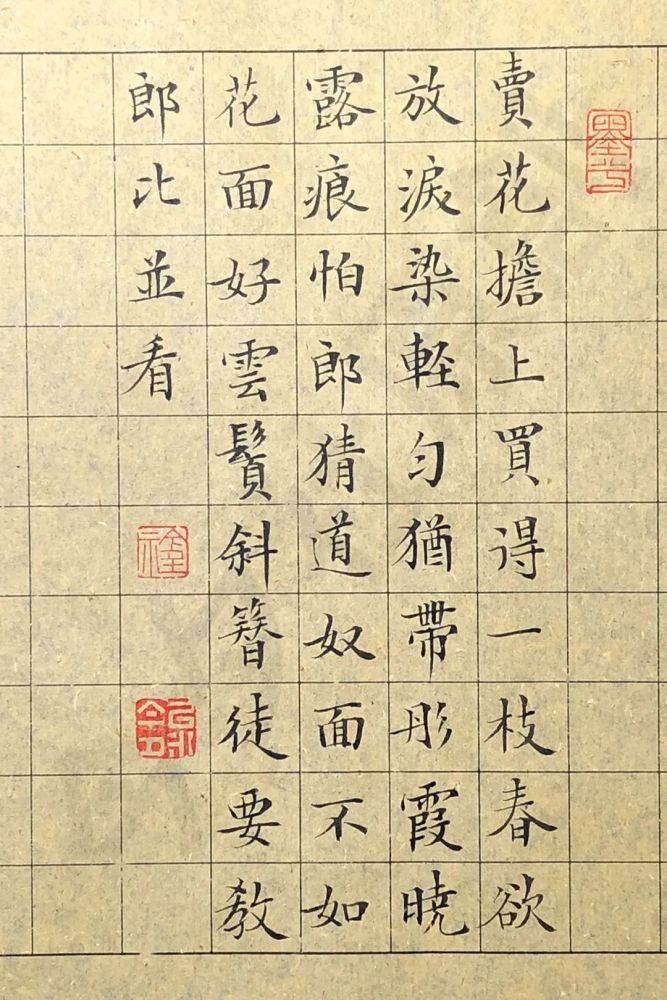 賣花擔上買得一枝春欲
放淚染軽勻猶帶彤霞曉
露痕怕郎猜道奴面不如
花面好雲鬢斜簪徒要教
郎比並看